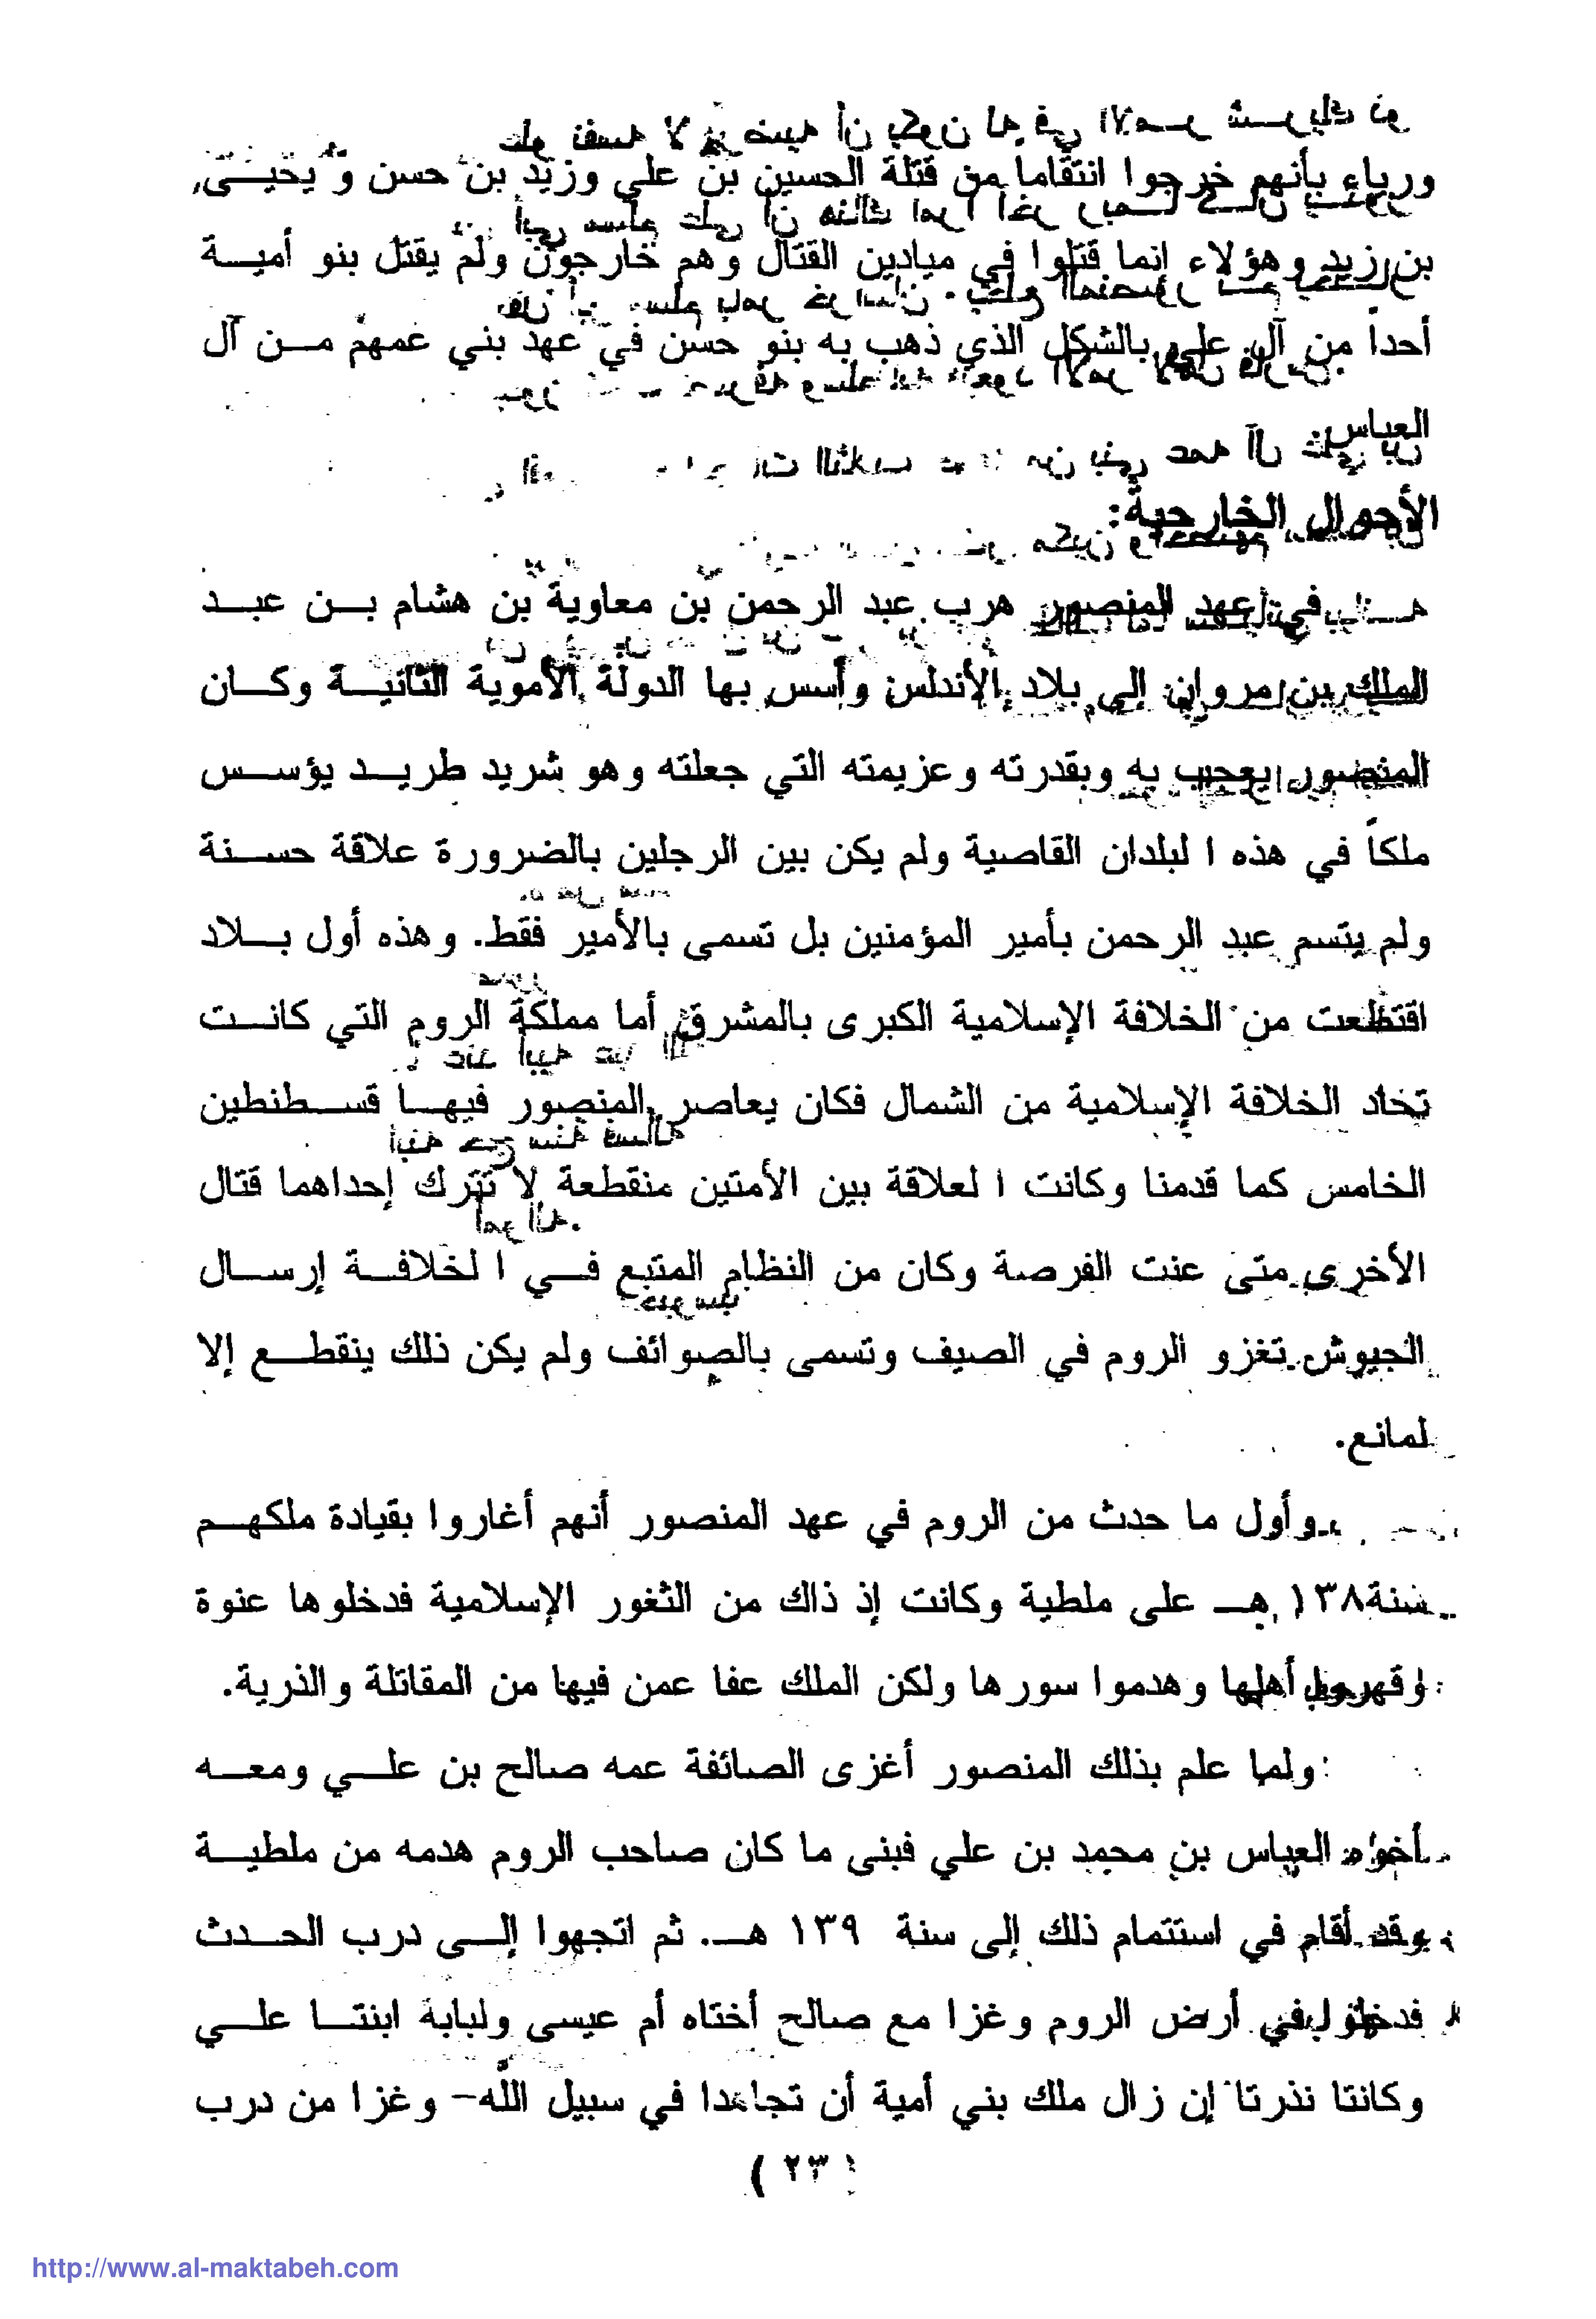 ورياء بأنهم خرجوا انتقاما من قتلة الحسين بن علي وزيد بن حسن و يحيـــى
بن زيد وهؤلاء إنما قتلوا في ميادين القتال وهم خارجون ولم يقتل بنو أميـــة
أحداً من آل علي بالشكل الذي ذهب به بنو حسن في عهد بني عمهم مـــن آل
العباس.
الأحوال الخارجية:
في عهد المنصور هرب عبد الرحمن بن معاوية بن هشام بـــن عبـــد
الملك بن مروان إلى بلاد الأندلس وأسس بها الدولة الأموية الثانيـــة وكـــان
المنصور يعجب به وبقدرته وعزيمته التي جعلته وهو شريد طريـــد يؤســـس
ملكاً في هذه ا لبلدان القاصية ولم يكن بين الرجلين بالضرورة علاقة حســـنة
ولم يتسم عبد الرحمن بأمير المؤمنين بل تسمى بالأمير فقط. وهذه أول بـــلاد
اقتطعت من الخلافة الإسلامية الكبرى بالمشرق أما مملكة الروم التي كانـــت
تحاد الخلافة الإسلامية من الشمال فكان يعاصر المنصور فيهـــا قســـطنطين
الخامس كما قدمنا وكانت ا لعلاقة بين الأمتين منقطعة لا تترك إحداهما قتال
الأخرى متى عنت الفرصة وكان من النظام المتبع فـــي ا لخلافـــة إرســـال
الجيوش تغزو الروم في الصيف وتسمى بالصوائف ولم يكن ذلك ينقطـــع إلا
لمانع.
وأول ما حدث من الروم في عهد المنصور أنهم أغاروا بقيادة ملكهـــم
سنة١٣٨ هـــ على ملطية وكانت إذ ذاك من الثغور الإسلامية فدخلوها عنوة
وقهروا أهلها وهدموا سورها ولكن الملك عفا عمن فيها من المقاتلة والذرية.
ولما علم بذلك المنصور أغزى الصائفة عمه صالح بن علـــي ومعـــه
أخوه العباس بن محمد بن علي فبنى ما كان صاحب الروم هدمه من ملطيـــة
وقد أقام في استتمام ذلك إلى سنة ١٣٩ هـــ. ثم اتجهوا إلـــى درب الحـــدث
فدخلوا في أرض الروم وغزا مع صالح أختاه أم عيسى ولبابة ابنتـــا علـــي
وكانتا نذرتا إن زال ملك بني أمية أن تجاهدا في سبيل الله- وغزا من درب
(٢٣)
http://www.al-maktabeh.com